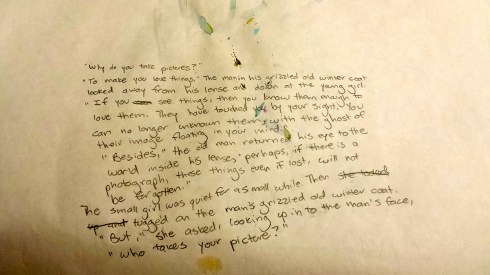 "Why do you take pictures?"
"To make you love things." The man in his grizzled old winter coat
looked away from his lense and down at the young girl.
"If you see things, then you know them enough to
love them. They have touched you by your sight. You
can no longer unknown them, with the ghost of
their image floating in your mind."
"Besides," the old man returned his eye to the
world inside his lense, "perhaps, if there is a
photograph, these things even if lost, will not
be forgotten."
The small girl was quiet for a small while. Then she looked
up and tugged on the man's grizzled old winter coat.
"But," she asked, looking up in to the man's face,
"who takes your picture?"